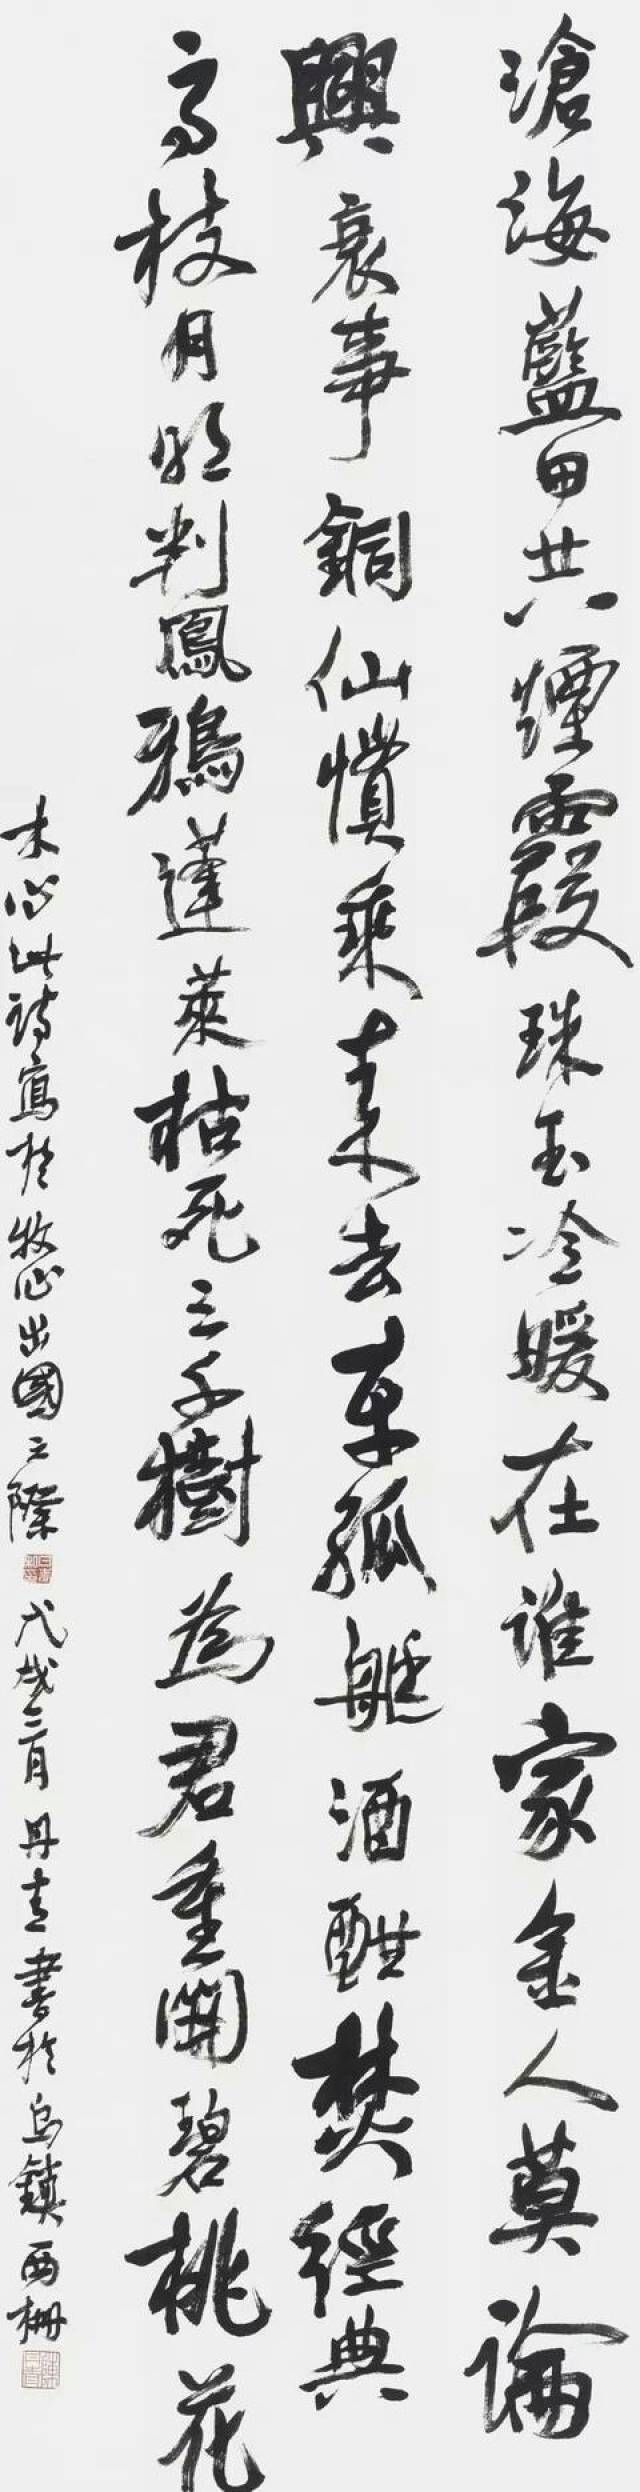 滄海藍田共煙霞珠玉冷暖在谁家金人莫論
興衰事銅仙慣乘來去車孤艇酒酣焚經典
高枝月明判鳳鴉蓬萊枯死三千樹為君重開碧桃花
木心此詩寫於牧心出國之際
戊戌二月丹青書於烏鎮西柵